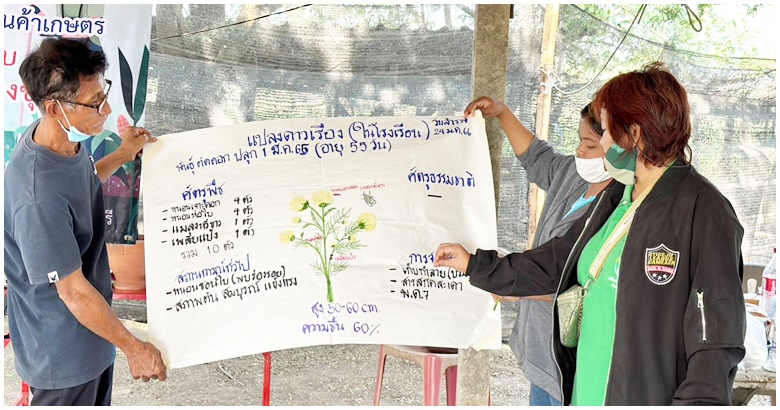 นค้าเกษตร
แปลงดาวเรือง (ในโรงเรือน)
วันสำรวจ
24 ม.ค. 66
พันธุ์ ตัดดอก ปลูก 1 มี.ค. 65 (อายุ 55 วัน)
ศัตรูพืช
- หนอนเจาะดอก 4 ตัว
- หนอนห่อใบ 4 ตัว
- แมลงหวี่ขาว 1 ตัว
- เพลี้ยแป้ง 1 ตัว
รวม 10 ตัว
ศัตรูธรรมชาติ
-
สถานการณ์ทั่วไป
- หนอนชอนใบ (พบร่องรอย)
- สภาพต้น สมบูรณ์ แข็งแรง
การจ
- เก็บทำลาย
- สารสกัดสะเดา
- พ.ด.7
สูง 50-60 cm
ความชื้น 60%